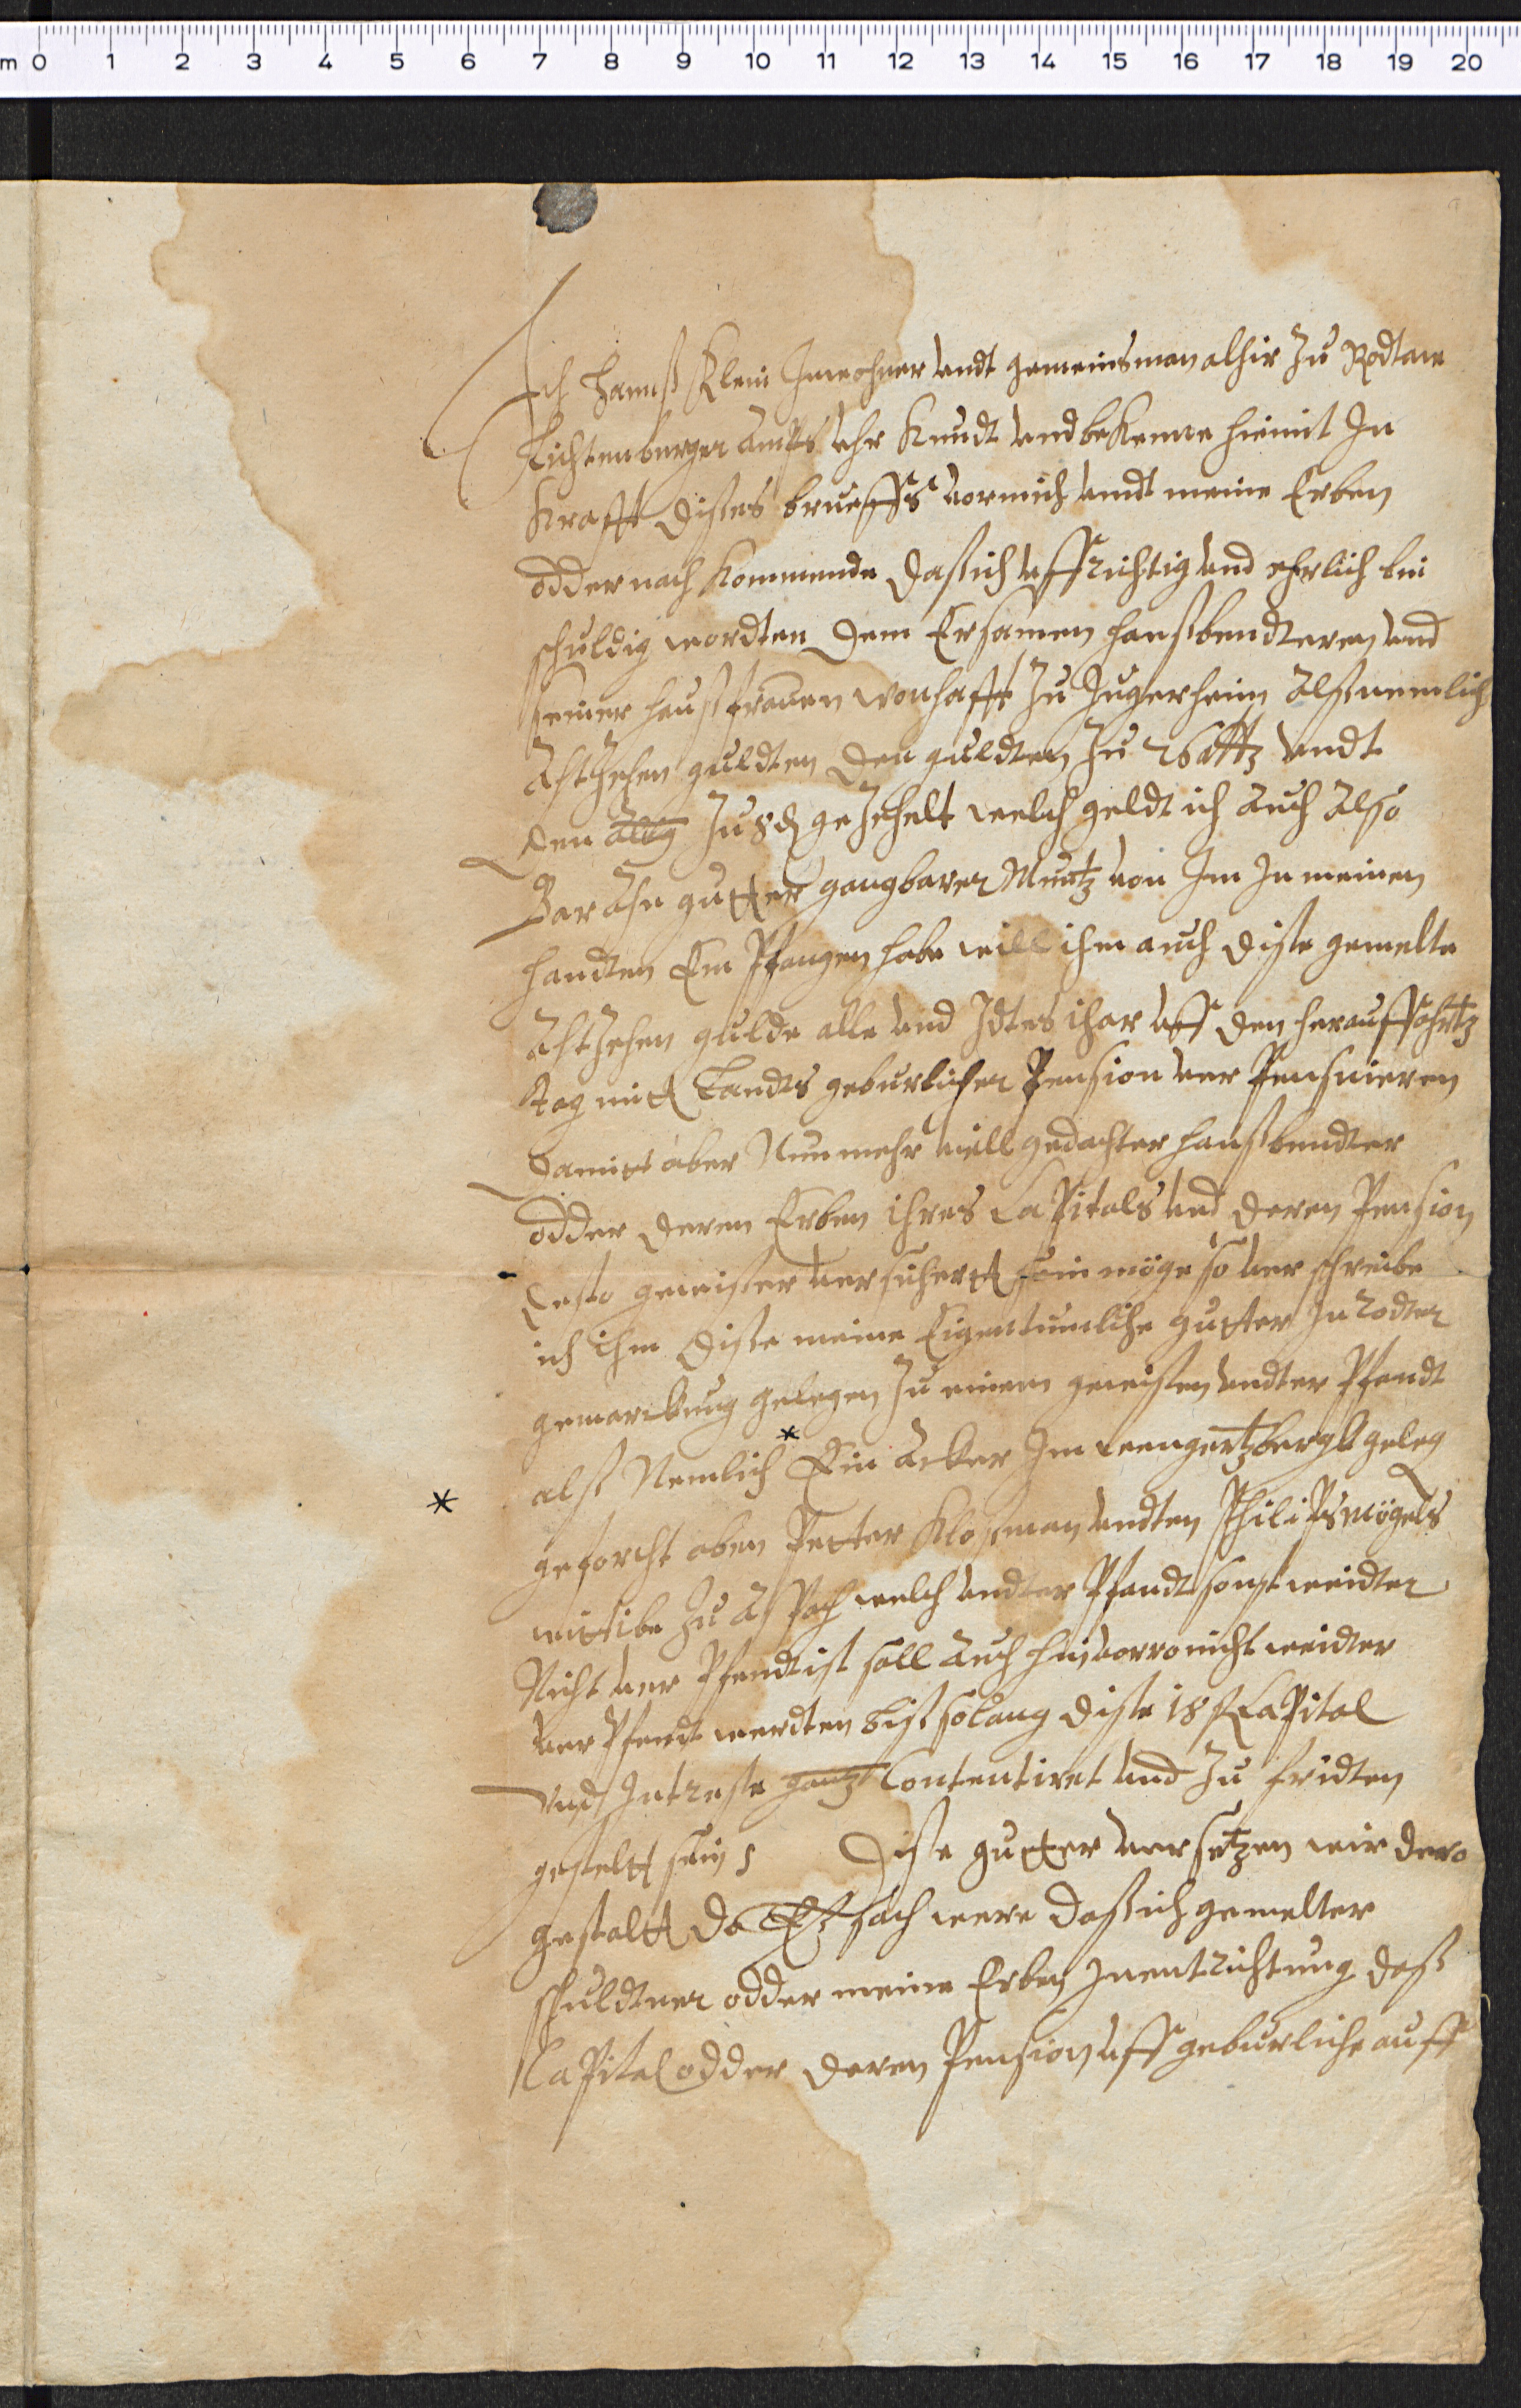 0 1 2 3 4 5 6 7 8 9 10 11 12 13 14 15 16 17 18 19 20
Ich Hannß Klein Inwohner undt gemeinsman alhir zu Rodtaw
Lichtenberger Ampts uhr Kundt und bekenne hiemit In
Krafft dißes brueffs vor mich undt meine Erben
odder nach kommende daß ich uffrichtig und ehrlich bin
schuldig wordten dem Ersamen hanß bendteren und
seiner haußfrauen wonhafft zu Jugenheim Alß nemlich
Achtzehen guldten den guldten zu 26 alb undt
den alb zu 8 d gezehelt welch geldt ich auch Also
Bar Ahn gutter gangbarer Muntz von Im In meinen
handten Em Pfangen habe will ihm auch diße gemelte
Achtzehen gulde alle und Idtes ihar uff den herauffahrtz
tag mitt Landts geburlicher Pension ver Pensnieren
damit aber Nun mehr well gedachter hanß bendter
odder deren Erben ihres CaPitals und deren Pension
desto gewißer versichertt sein möge so ver schreibe
ich Ihm diße meine Eigentumliche gutter In rodter
gemarckung gelegen zu einem gewißen undter Pfandt
alß Nemlich * Ein Acker Im wengertzbergk geleg
*
geforcht oben Petter Kloßman undten PhiliPs Mögels
wittibe zu AßPach welch undter Pfandt sonst weidter
Nicht ver Pfendt ist soll auch hin vorro nicht weidter
ver Pfendt werdten biß solang diße 18 fl CaPital
und Intreße gantz Contentiret und zu fridten
gestelt sein Diße gutter versetzen wir dero
gestaltt Da Eß sach were daß ich gemelter
schuldtner odder meine Erben In entrichtung deß
CaPital odder deren Pension uff geburliche auff